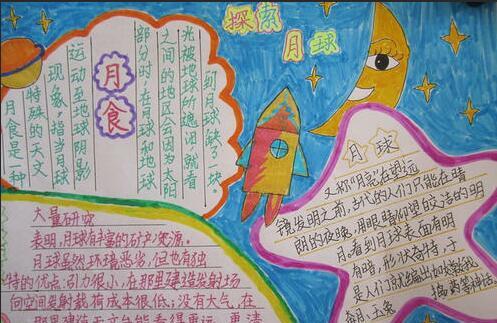 探索
月球
月食
月食是一种
特殊的天文
现象,指当月球
运动至地球阴影
部分时,在月球和地球
之间的地区会因为太阳
光被地球所遮闭就看
到月球缺了一块。
月球
又称“月亮”在望远
镜发明之前,古代的人们只能在晴
朗的夜晚,用眼睛仰望皎洁的明
月。看到月球表面有明
有暗,形状奇特,于
是人们就编出如嫦娥
奔月、玉兔捣药等神话。
大量研究
表明,月球有丰富的矿产资源。
月球虽然环境恶劣,但也有独
特的优点:引力很小,在那里建造发射场
向空间发射载荷成本很低;没有大气,在
那里建造天文台能看得更远、更清